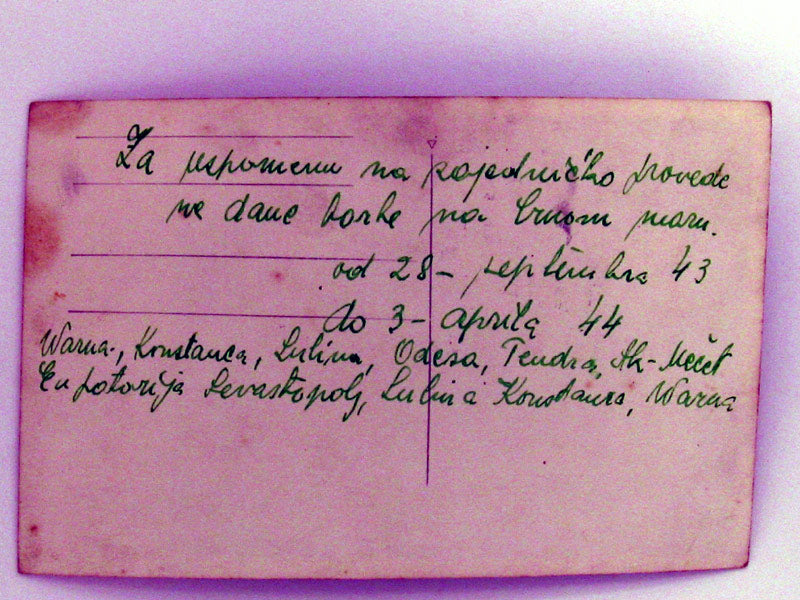 Za uspomenu na zajedničko provede
ne dane borbe na Crnom moru.
od 28 - septembra 43
do 3 - aprila 44
Warna, Konstanca, Sulina, Odesa, Tendra, Ak-Mečet
Eupatorija Sevastopolj, Sulina Konstanca, Warna